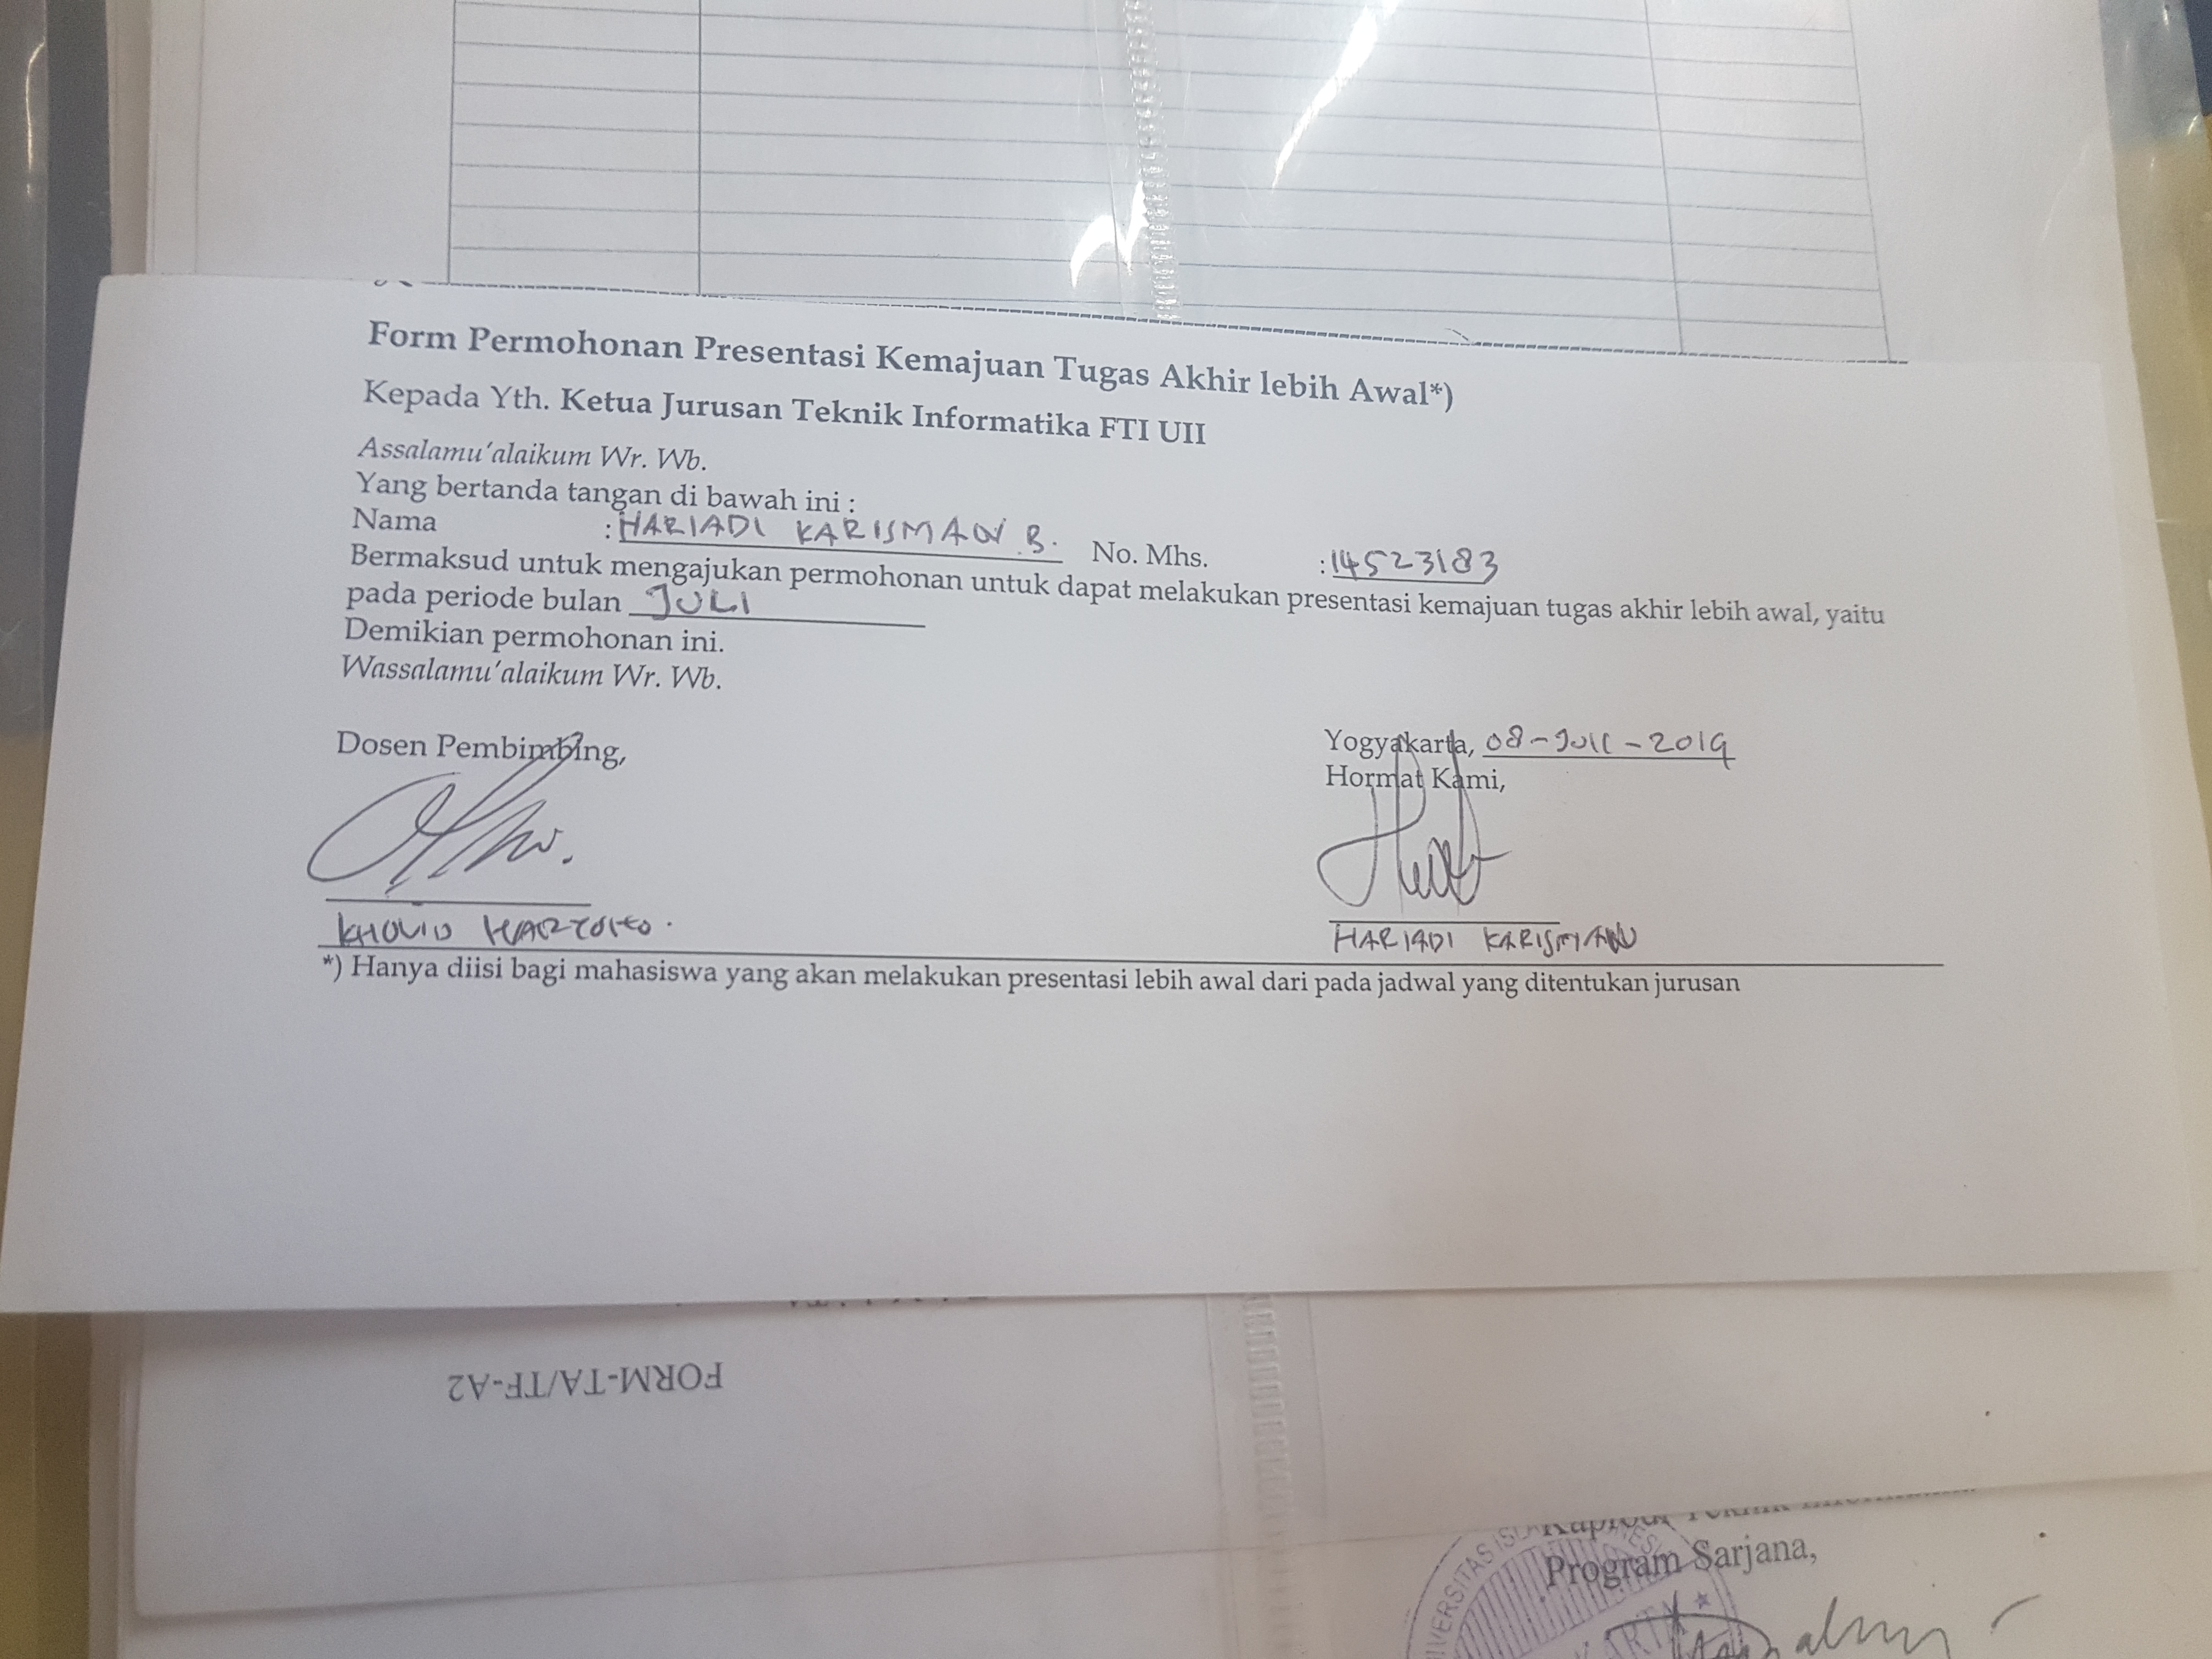 Form Permohonan Presentasi Kemajuan Tugas Akhir lebih Awal*)
Kepada Yth. Ketua Jurusan Teknik Informatika FTI UII
Assalamu'alaikum Wr. Wb.
Yang bertanda tangan di bawah ini :
Nama : HARIADI KARISMAN B. No. Mhs. : 14523183
Bermaksud untuk mengajukan permohonan untuk dapat melakukan presentasi kemajuan tugas akhir lebih awal, yaitu
pada periode bulan JULI
Demikian permohonan ini.
Wassalamu'alaikum Wr. Wb.
Yogyakarta, 08-JULI-2019
Dosen Pembimbing, Hormat Kami,
KHOLID HARYONO. HARIADI KARISMAN
*) Hanya diisi bagi mahasiswa yang akan melakukan presentasi lebih awal dari pada jadwal yang ditentukan jurusan
FORM-TA/TF-A2
Program Sarjana,